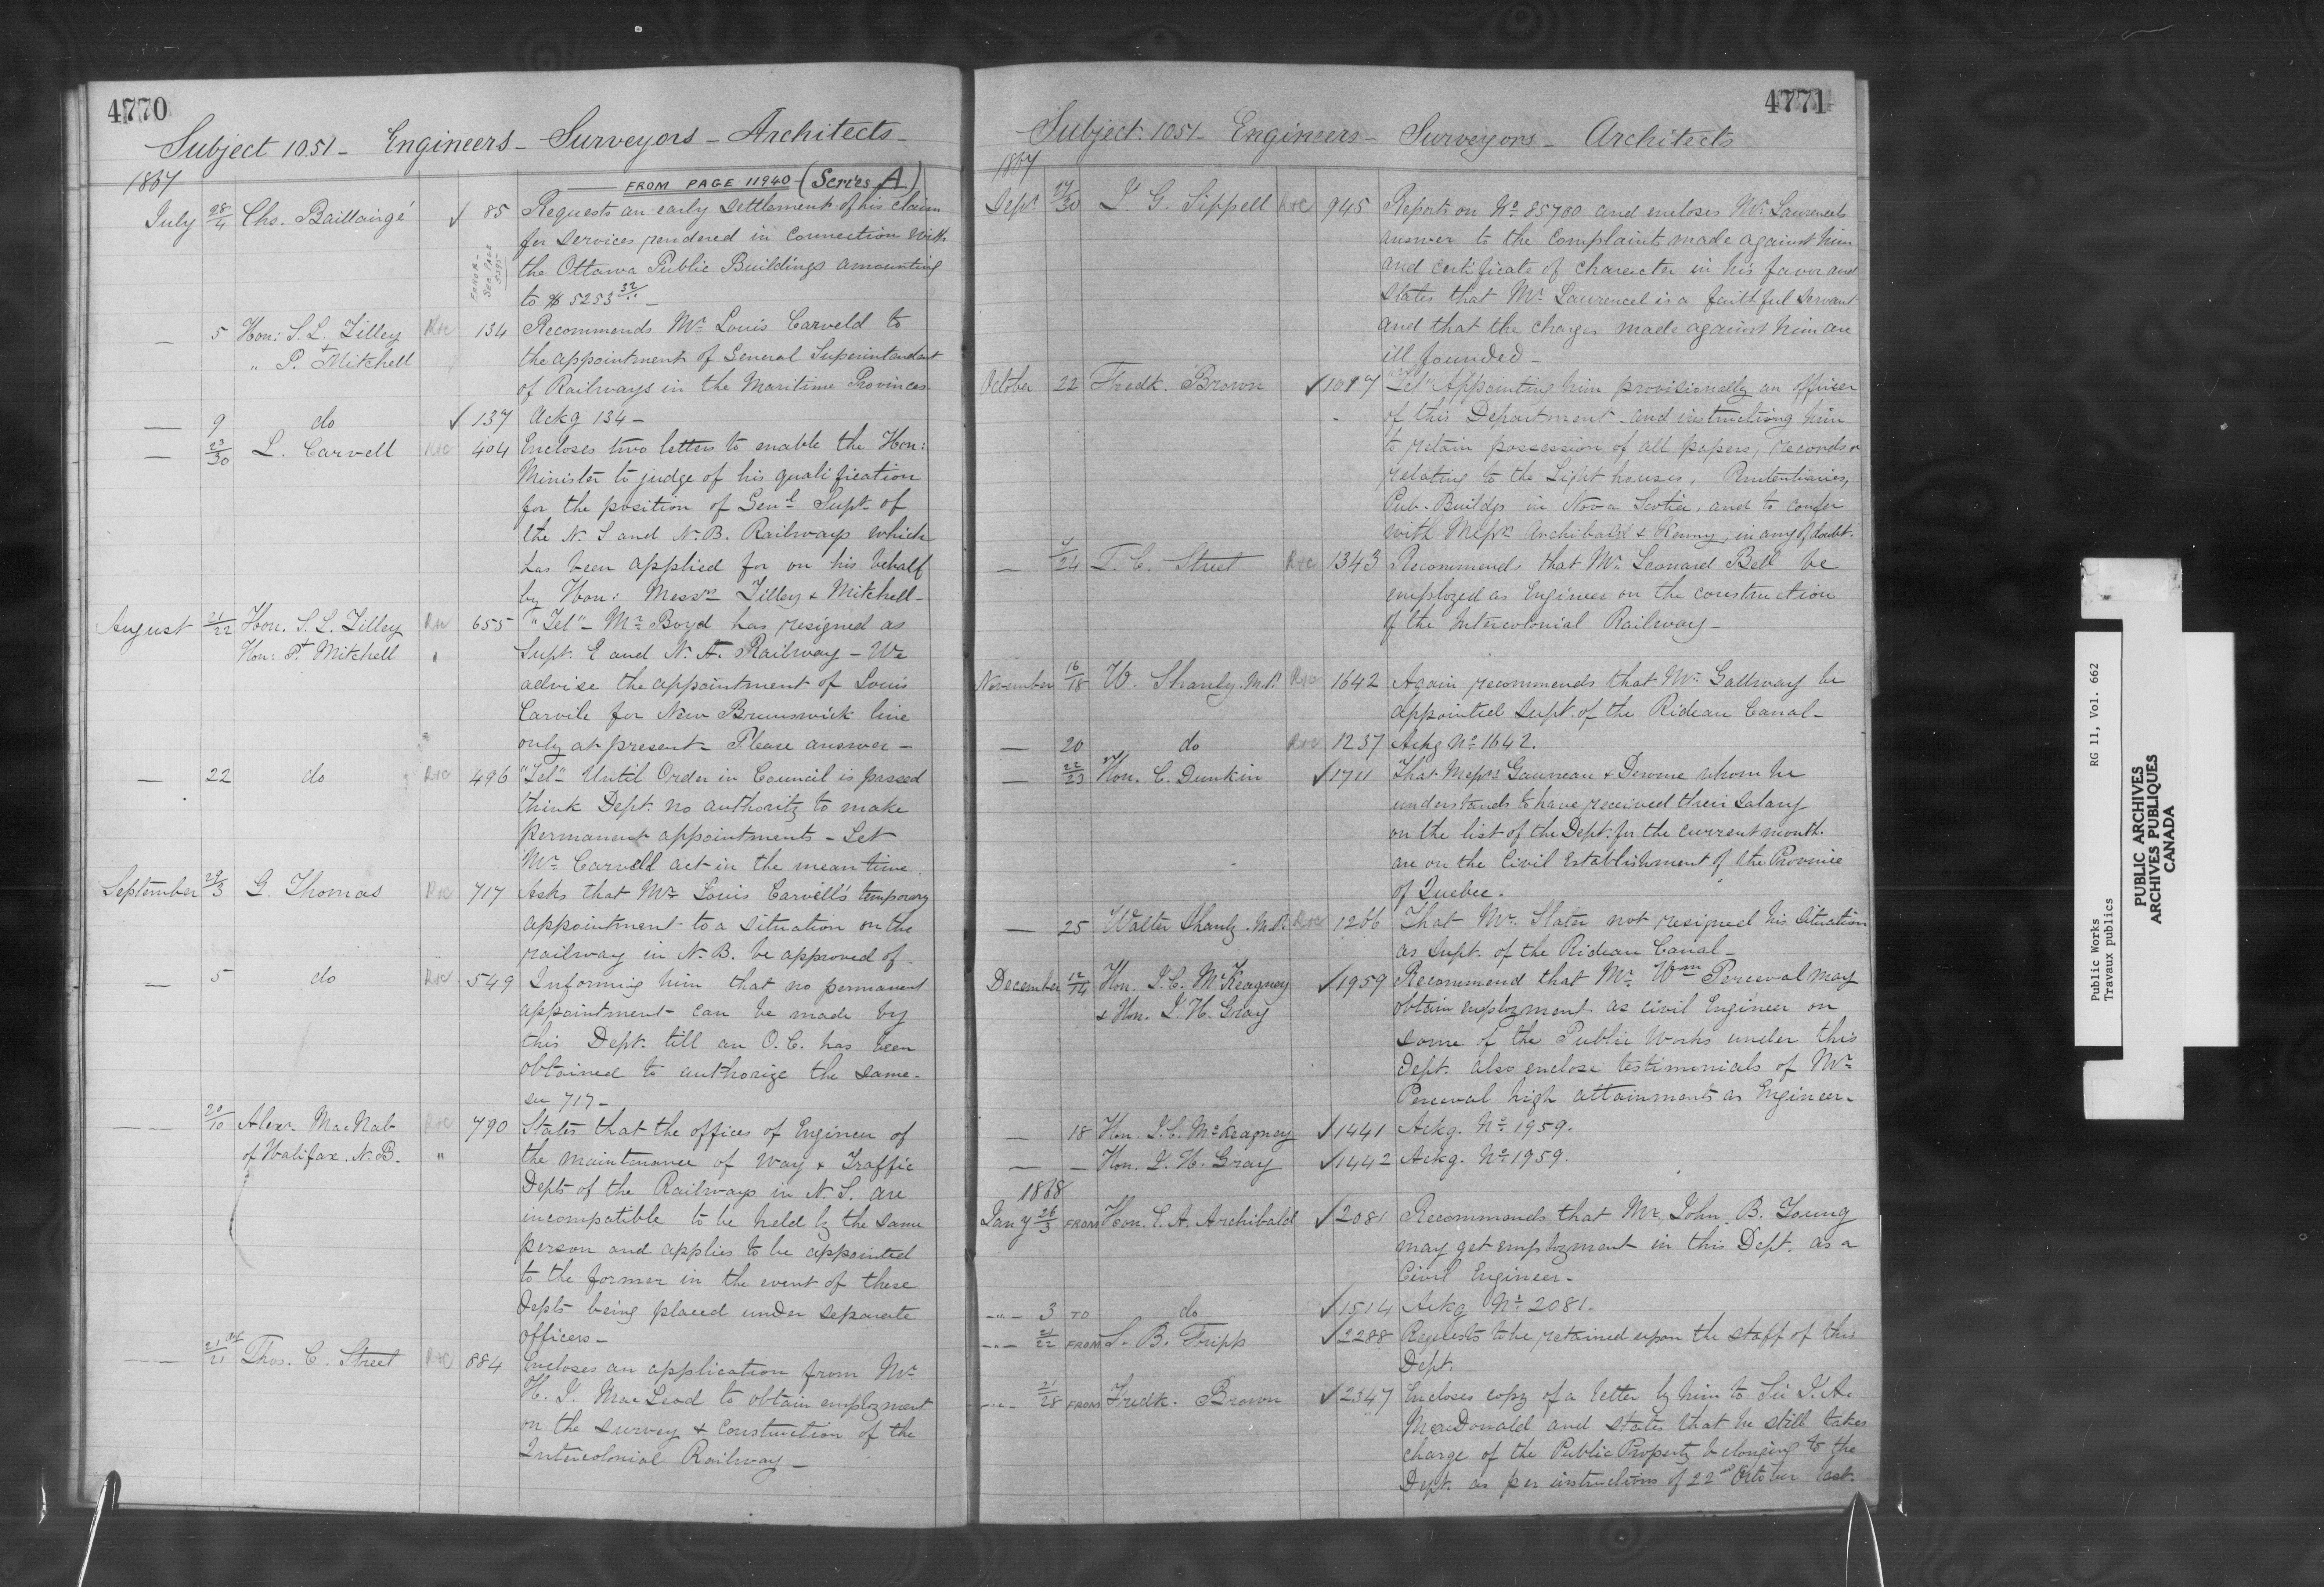 4770
Subject 1051 - Engineers - Surveyors - Architects -
1867
FROM PAGE 11940 - (Series A)
July 28/4 Chs. Baillairgé ✓ 85 Requests an early settlement of his claim
for services rendered in connection with
the Ottawa Public Buildings amounting
to $ 5253 32/.. -
ERROR -
SEE PAGE
— 5 Hon: S. L. Tilley R&C 134 Recommends Mr Louis Carveld to
" P. Mitchell the appointment of General Superintendent
of Railways in the Maritime Provinces
— 9 do ✓ 137 Ackg 134 -
— 23/30 L. Carvell R&C 404 Encloses two letters to enable the Hon:
Minister to judge of his qualification
for the position of Genl Supt. of
the N. S and N. B. Railways which
has been applied for on his behalf
by Hon: Messrs Tilley & Mitchell -
August 21/22 Hon. S. L. Tilley R&C 655 "Tel" - Mr Boyd has resigned as
Hon: P. Mitchell " Supt. E and N. A. Railway - We
advise the appointment of Louis
Carvile for New Brunswick line
only at present - Please answer -
— 22 do R&C 496 "Tel" Until Order in Council is passed
think Dept. no authority to make
permanent appointments - Let
Mr Carvell act in the mean time.
September 29/3 G. Thomas R&C 717 Asks that Mr Louis Carvill's temporary
appointment to a situation on the
railway in N. B. be approved of -
— 5 do R&C 549 Informing him that no permanent
appointment can be made by
this Dept. till an O. C. has been
obtained to authorize the same -
see 717 -
— — 20/10 Alexr MacNab R&C 790 States that the offices of Engineer of
of Halifax. N. B. " the maintenance of way & Traffic
Depts of the Railways in N. S. are
incompatible to be held by the same
person and applies to be appointed
to the former in the event of these
Depts being placed under separate
officers -
— — 21/21 Thos. C. Street R&C 884 Encloses an application from Mr
H. J. MacLeod to obtain employment
on the survey & construction of the
Intercolonial Railway -
4771
Subject 1051 - Engineers - Surveyors - Architects
1867
Sept. 27/30 J. G. Sippell R&C 945 Reports on No 85700 and encloses Mr Laurencel's
answer to the complaint made against him
and certificate of character in his favor and
states that Mr Laurencel is a faithful servant
and that the charges made against him are
ill founded -
October 22 Fredk. Brown ✓ 1017 "Tel" Appointing him provisionally an officer
of this Department and instructing him
to retain possession of all papers, records &
relating to the Light houses, Penitentiaries,
Pub. Buildgs in Nova Scotia, and to confer
with Messrs Archibald & Kenny, in any of doubt.
— /24 T. C. Street R&C 1343 Recommends that Mr Leonard Bell be
employed as Engineer on the construction
of the Intercolonial Railway -
November 16/18 W. Shanly M.P. R&C 1642 Again recommends that Mr Gallway be
appointed Supt. of the Rideau Canal -
— 20 do R&C 1237 Ackg No 1642.
— 22/23 Hon. C. Dunkin ✓ 1711 That Messrs Gauvreau & Derome whom he
understands to have received their salary
on the list of the Dept. for the current month.
are on the Civil Establishment of the Province
of Quebec.
— 25 Walter Shanly. M.P. R&C 1266 That Mr. Slater not resigned his situation
as Supt. of the Rideau Canal -
December 12/14 Hon. J. C. McKeagney ✓ 1959 Recommend that Mr Wm Perceval may
& Hon. J. H. Gray obtain employment as civil Engineer on
some of the Public Works under this
Dept. also enclose testimonials of Mr
Perceval high attainments as Engineer -
— 18 Hon. J. C. McKeagney ✓ 1441 Ackg. No 1959.
— — Hon. J. H. Gray ✓ 1442 Ackg. No 1959.
1868
Jany 26/3 FROM Hon. C. A. Archibald ✓ 2081 Recommends that Mr. John. B. Young
may get employment in this Dept. as a
Civil Engineer -
-"- 3 TO do ✓ 1514 Ackg No 2081.
-"- 21/22 FROM S. B. Fripp ✓ 2288 Requests to be retained upon the staff of this
Dept.
-"- 21/28 FROM Fredk. Brown ✓ 2347 Encloses copy of a letter by him to Sir J. A.
MacDonald and states that he still takes
charge of the Public Property belonging to the
Dept. as per instructions of 22nd October last.
Public Works RG 11, Vol. 662
Travaux publics
PUBLIC ARCHIVES
ARCHIVES PUBLIQUES
CANADA